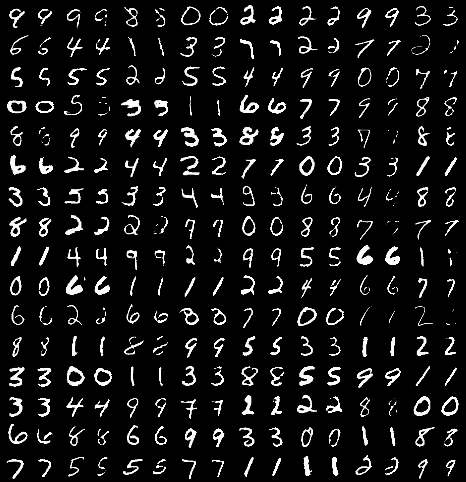 9 9 9 9 8 8 0 0 2 2 2 2 9 9 3 3
6 6 4 4 1 1 3 3 7 7 2 2 7 7 2
5 5 5 5 2 2 5 5 4 4 9 9 0 0 7 7
0 0 5 5 3 3 1 1 6 6 7 7 9 9 8 8
8 8 9 9 4 4 3 3 8 8 3 3 7 7 8 8
6 6 2 2 4 4 2 2 7 7 0 0 3 3 1 1
3 3 5 5 3 3 4 4 9 9 6 6 4 4 8 8
8 8 2 2 2 2 9 9 0 0 8 8 7 7 7 7
1 1 4 4 9 9 2 2 9 9 5 5 6 6 1 1
0 0 6 6 1 1 1 1 2 2 4 4 6 6 7 7
6 6 2 2 6 6 8 8 7 7 0 0 1 1 2
8 8 1 1 8 8 9 9 5 5 3 3 1 1 2 2
3 3 0 0 1 1 3 3 8 8 5 5 9 9 1 1
3 3 4 4 9 9 7 7 1 1 2 2 8 8 0 0
6 6 8 8 6 6 9 9 3 3 0 0 1 1 8 8
7 7 5 5 5 5 7 7 1 1 1 1 2 2 9 9